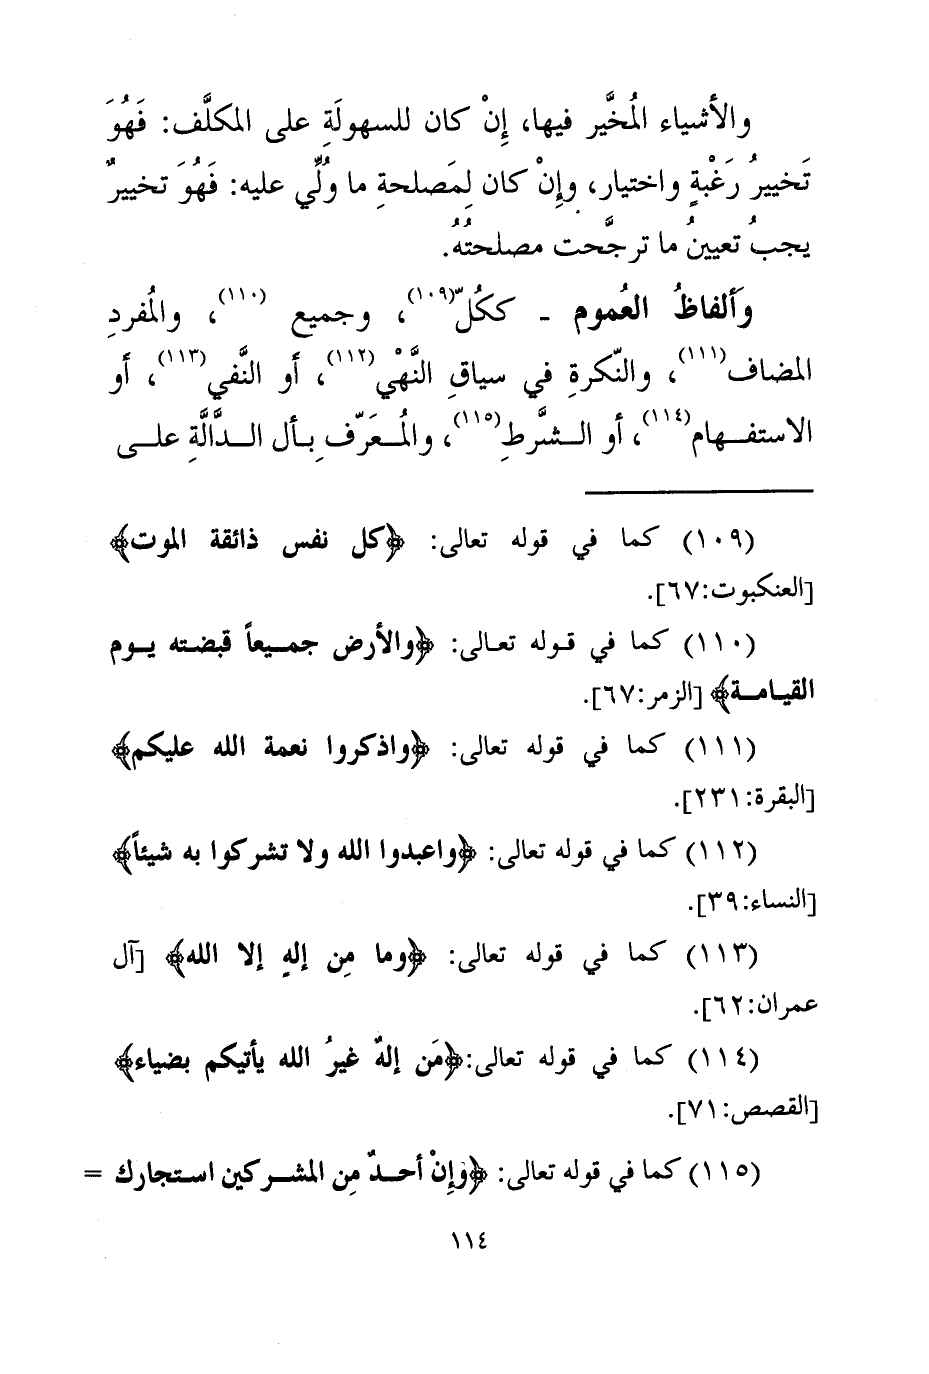 والأشياء المُخيَّر فيها، إِنْ كان للسهولَةِ على المكلَّف: فَهُوَ
تَخييرُ رَغْبةٍ واختيار، وإِنْ كان لِمَصلحةِ ما وُلِّي عليه: فَهُوَ تخييرٌ
يجبُ تعيينُ ما ترجَّحت مصلحتُهُ.
وَألفاظُ العُموم - ككُلّ(١٠٩)، وجميع (١١٠)، والمُفردِ
المضاف(١١١)، والنّكرةِ في سياقِ النَّهْي(١١٢)، أو النَّفي(١١٣)، أو
الاستفهام(١١٤)، أو الشَّرطِ(١١٥)، والمُعَرّفِ بأل الدَّالَّةِ على
(١٠٩) كما في قوله تعالى: ﴿كل نفس ذائقة الموت﴾
[العنكبوت:٦٧].
(١١٠) كما في قوله تعالى: ﴿والأرض جميعاً قبضته يوم
القيامة﴾ [الزمر:٦٧].
(١١١) كما في قوله تعالى: ﴿واذكروا نعمة الله عليكم﴾
[البقرة:٢٣١].
(١١٢) كما في قوله تعالى: ﴿واعبدوا الله ولا تشركوا به شيئاً﴾
[النساء:٣٩].
(١١٣) كما في قوله تعالى: ﴿وما مِن إلهٍ إلا الله﴾ [آل
عمران:٦٢].
(١١٤) كما في قوله تعالى:﴿مَن إلهٌ غيرُ الله يأتيكم بضياء﴾
[القصص:٧١].
(١١٥) كما في قوله تعالى: ﴿وَإِنْ أحدٌ مِن المشركين استجارك =
١١٤